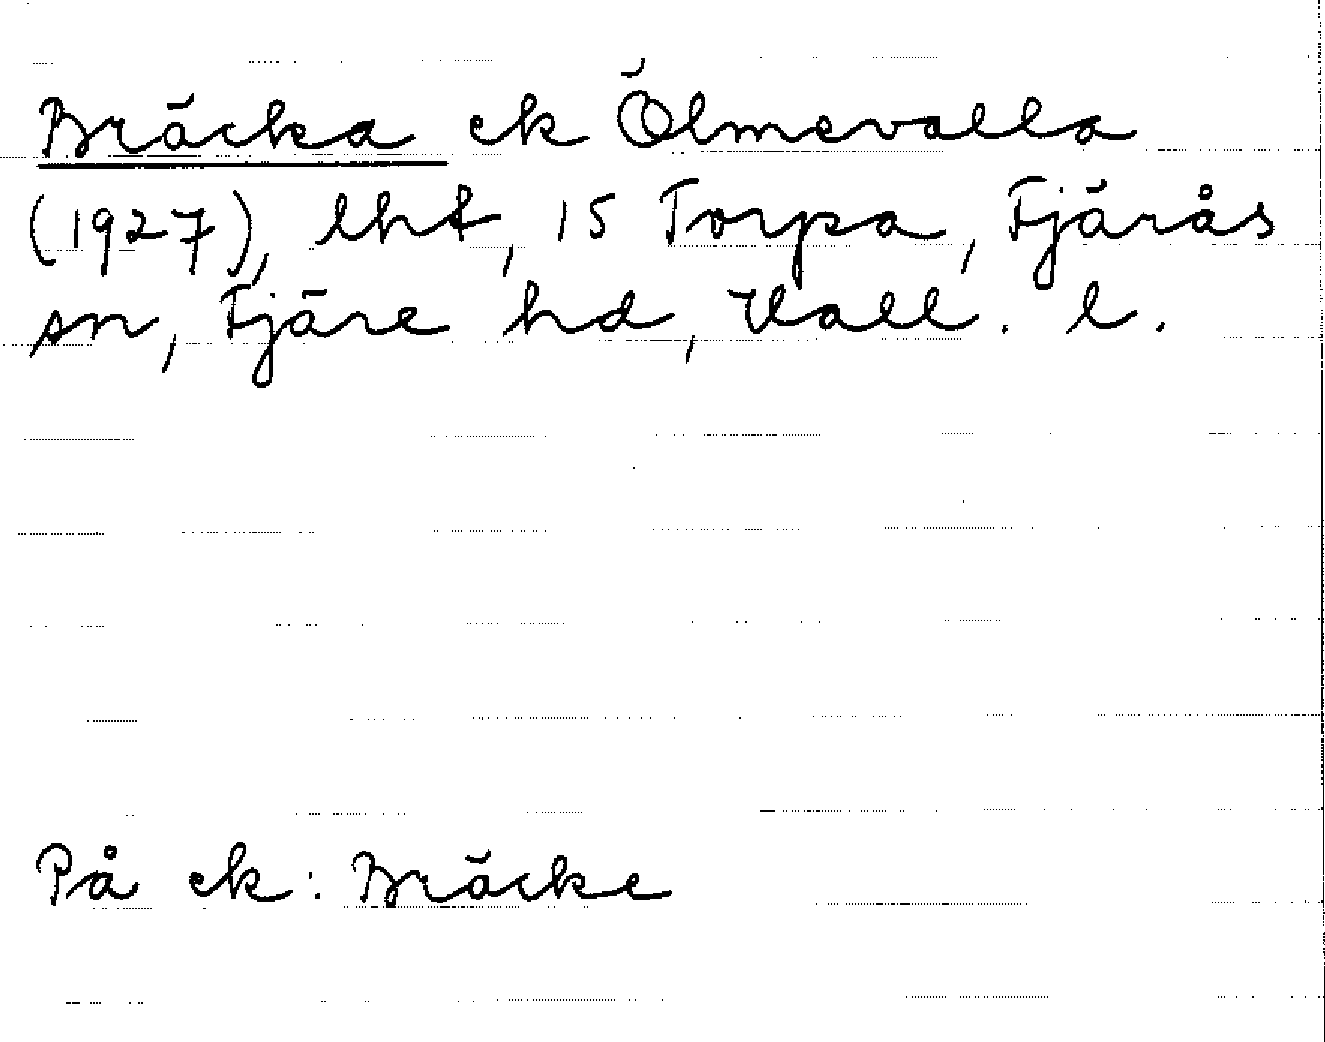 Bräcka ek Ölmevalla
(1927), lht, 15 Torpa, Fjärås
sn, Fjäre hd, Hall. l.
På ek: Bräcke